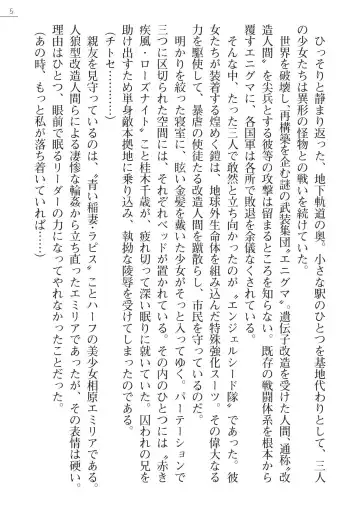 5
ひっそりと静まり返った、地下軌道の奥。小さな駅のひとつを基地代わりとして、三人
の少女たちは異形の怪物との戦いを続けていた。
世界を破壊し、再構築を企む謎の武装集団〝エニグマ〟。遺伝子改造を受けた人間、通称〝改
造人間〟を尖兵とする彼等の攻撃は留まるところを知らない。既存の戦闘体系を根本から
覆すエニグマに、各国軍は各所で敗退を余儀なくされている。
そんな中、たった三人で敢然と立ち向かったのが〝エンジェルシード隊〟であった。彼
女たちが装着する煌めく鎧は、地球外生命体を組み込んだ特殊強化スーツ。その偉大なる
力を駆使して、暴虐の使徒たる改造人間を蹴散らし、市民を守っているのだ。
明かりを絞った寝室に、眩い金髪を戴いた少女がそっと入ってゆく。パーテーションで
三つに区切られた空間には、それぞれベッドが置かれている。その内のひとつには〝赤き
疾風・ローズナイト〟こと桂木千歳が、疲れ切って深い眠りに就いていた。囚われの兄を
助け出すため単身敵本拠地に乗り込み、執拗な陵辱を受けてしまったのだ。
(チトセ……)
親友を見守っているのは、〝青い稲妻・ラピス〟ことハーフの美少女相原エミリアである。
人狼型改造人間による凄惨な輪姦から立ち直ったエミリアであるが、その表情は硬い。
理由はひとつ、眼前で眠るリーダーの力になってやれなかったことだった。
(あの時、もっと私が落ち着いていれば……)